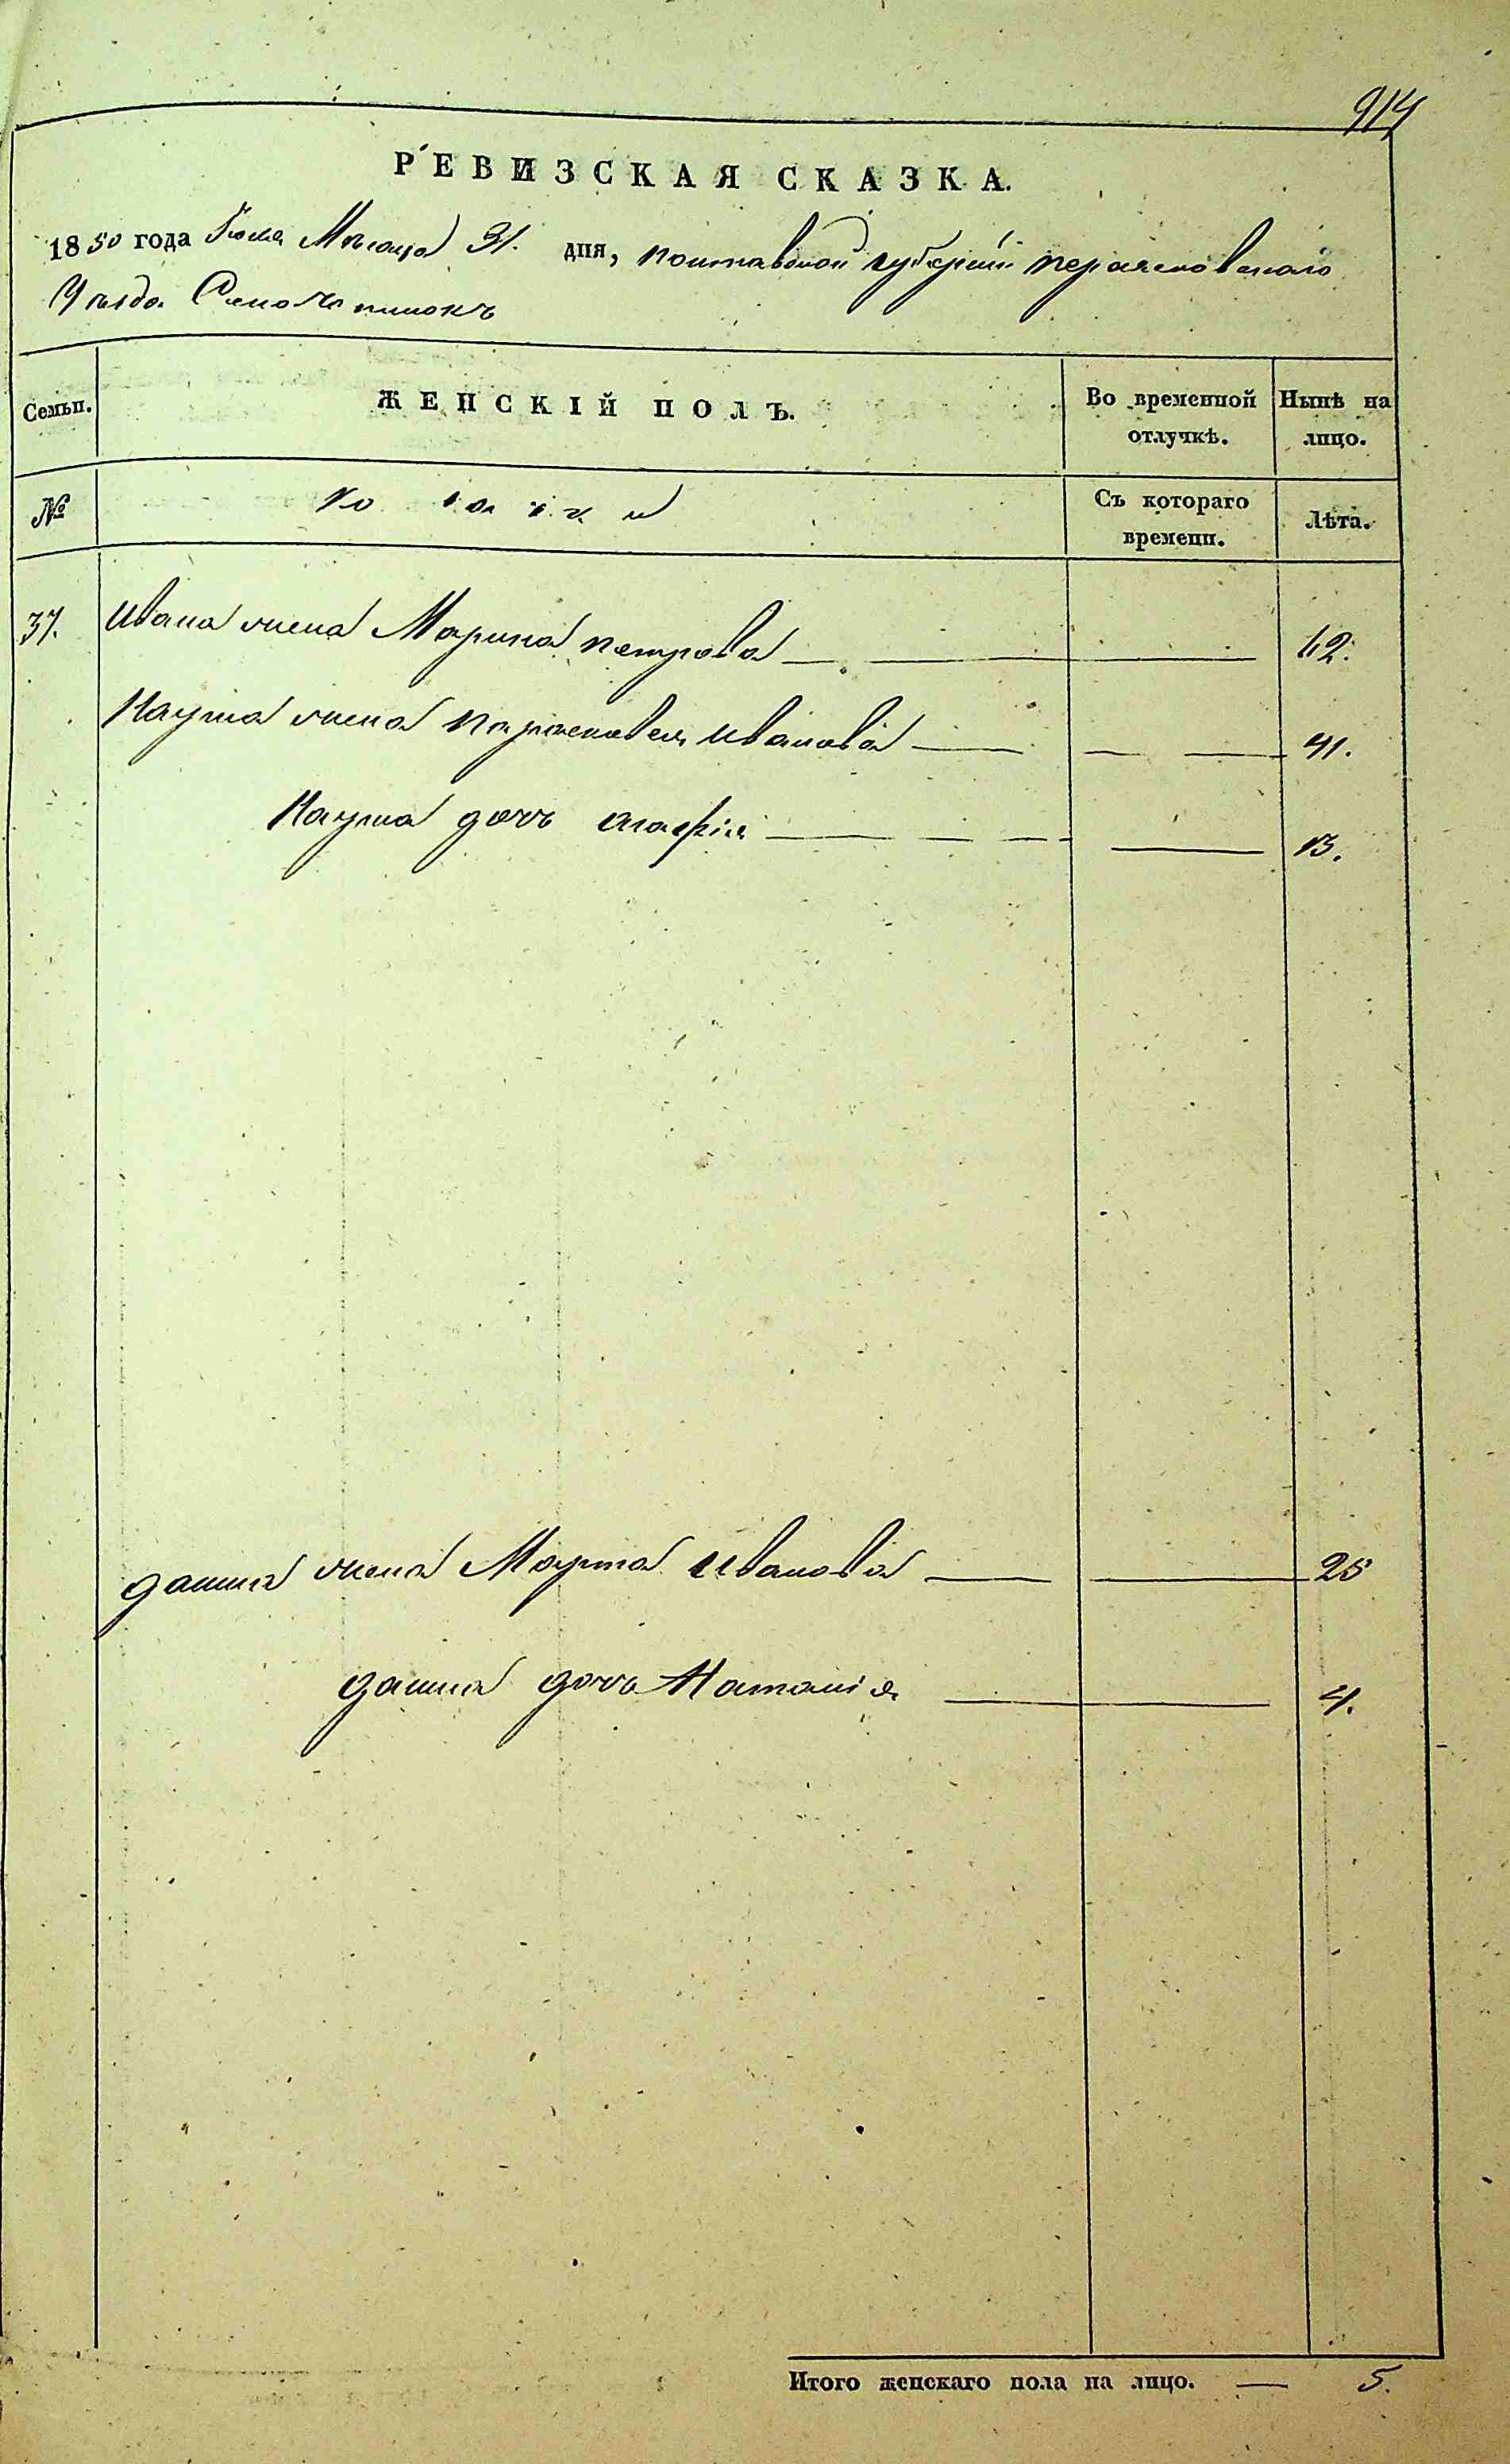 914
РЕВИЗСКАЯ СКАЗКА.
1850 года Іюля Мѣсяца 31. дня, полтавской губерніи переясловскаго
Уѣзда Село
Семьи.
ЖЕНСКІЙ ПОЛЪ.
Во временной отлучкѣ.
Ныне на лицо.
№
Козачки
Съ котораго времени.
Лѣта.
37. Ивана жена Марина петрова — — 62.
Наума жена параскевея иванова — — 41.
Наума дочь агафія — — 13.
данила жена Марта иванова — — 25
данила дочь Наталія — — 4.
Итого женскаго пола на лицо. — 5.